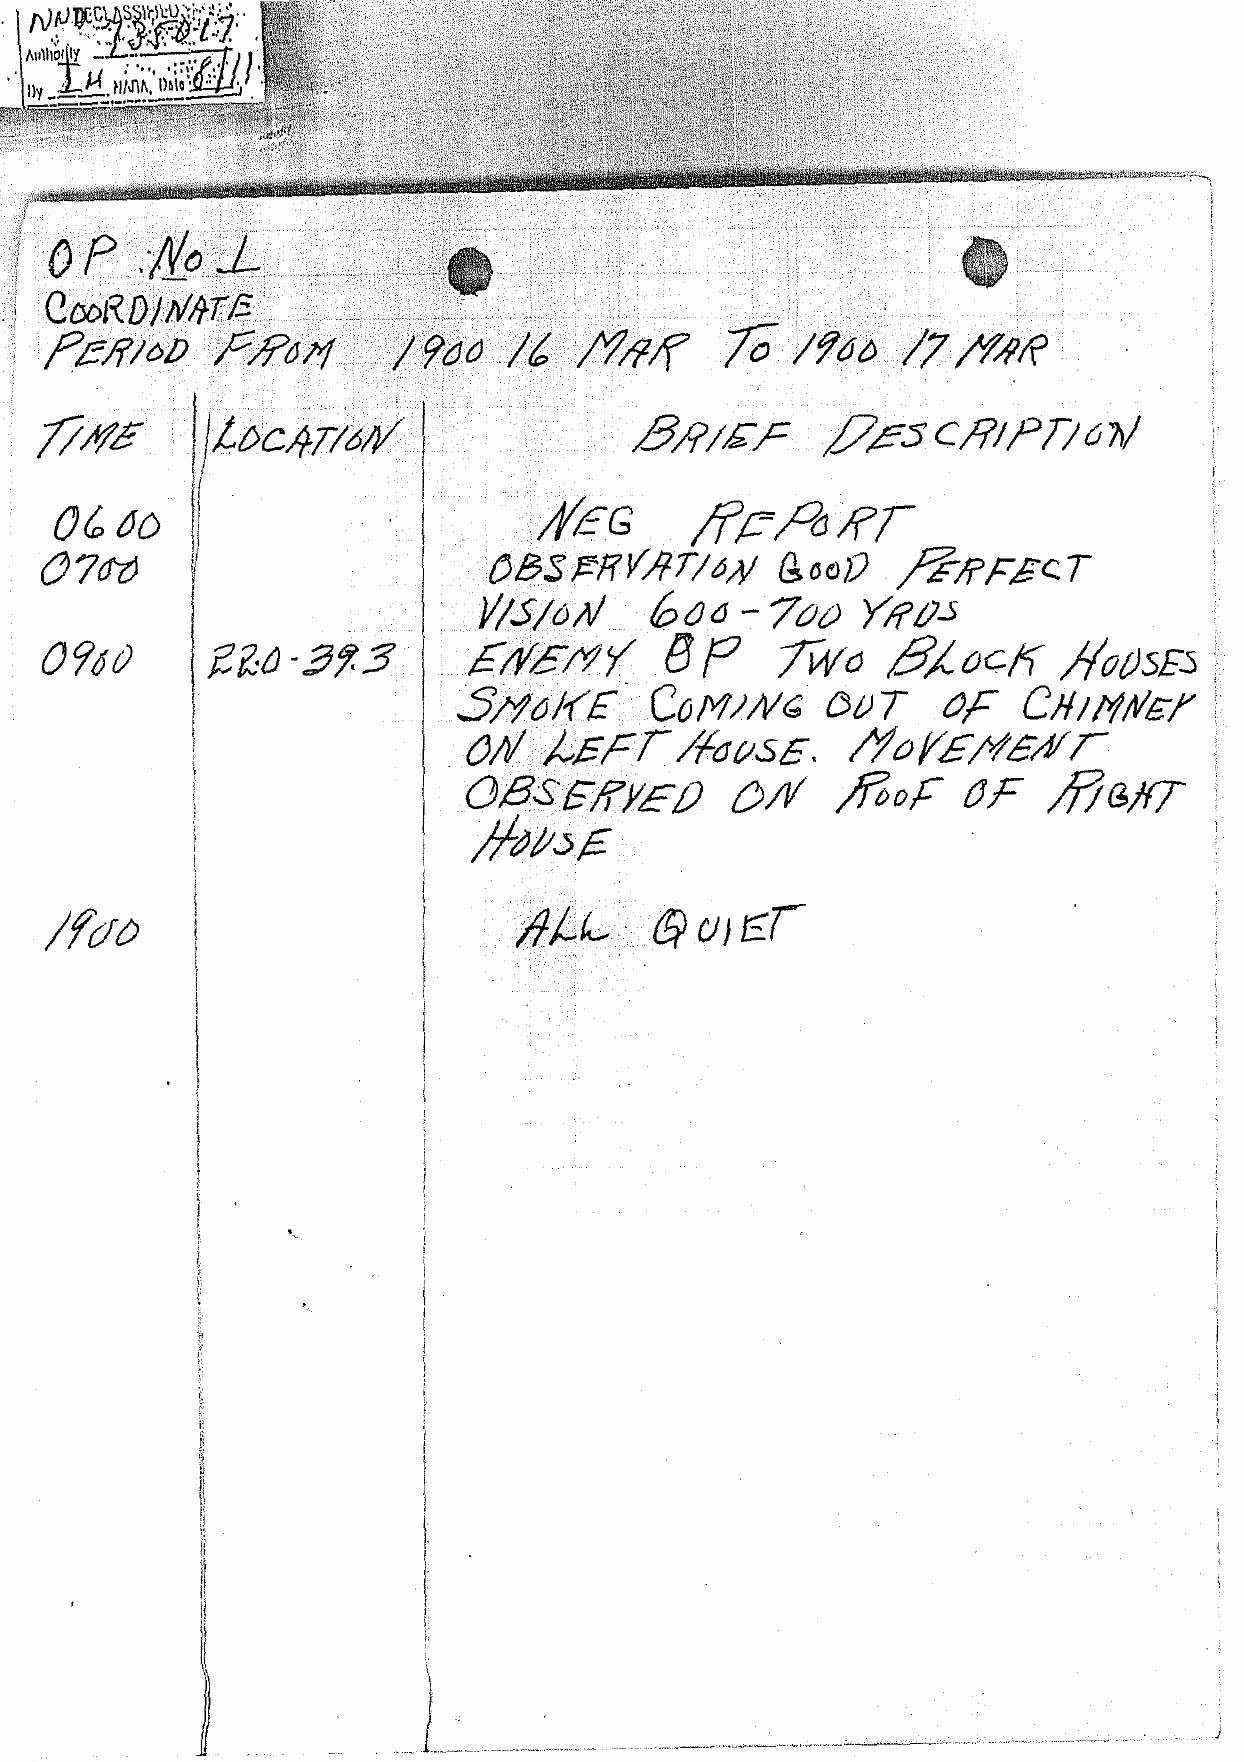 DECLASSIFIED
Authority NND 735017
By IH NARA, Date 8/11
OP No 1
COORDINATE
PERIOD FROM 1900 16 MAR TO 1900 17 MAR
TIME LOCATION BRIEF DESCRIPTION
0600 NEG REPORT
0700 OBSERVATION GOOD PERFECT
VISION 600-700 YRDS
0900 22.0-39.3 ENEMY OP TWO BLOCK HOUSES
SMOKE COMING OUT OF CHIMNEY
ON LEFT HOUSE. MOVEMENT
OBSERVED ON ROOF OF RIGHT
HOUSE
1900 ALL QUIET